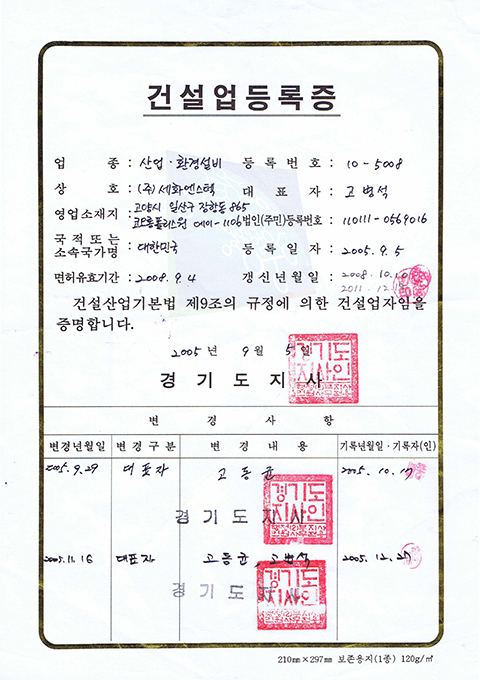 건설업등록증
업 종 : 산업 · 환경설비 등 록 번 호 : 10 - 5008
상 호 : (주)세화엔스텍 대 표 자 : 고 병석
영업소재지 : 고양시 일산구 장항동 865
코오롱폴리스원 에이-1106 법인(주민)등록번호 : 110111 - 0569016
국 적 또 는
소속국가명 : 대한민국 등 록 일 자 : 2005. 9. 5
면허유효기간 : 2008. 9. 4 갱 신 년 월 일 : 2008. 10. 10
2011. 12.
건설산업기본법 제9조의 규정에 의한 건설업자임을
증명합니다.
2005 년 9 월 5 일
경 기 도 지 사
경기도
지사인
변 경 사 항
변경년월일 변 경 구 분 변 경 내 용 기록년월일 · 기록자(인)
2005. 9. 29 대표자 고 동 균 2005. 10. 17
경 기 도 지 사
경기도
지사인
2005. 11. 16 대표자 고동균, 고병석 2005. 12. 27
경 기 도 지 사
경기도
지사인
210mm×297mm 보존용지(1종) 120g/㎡